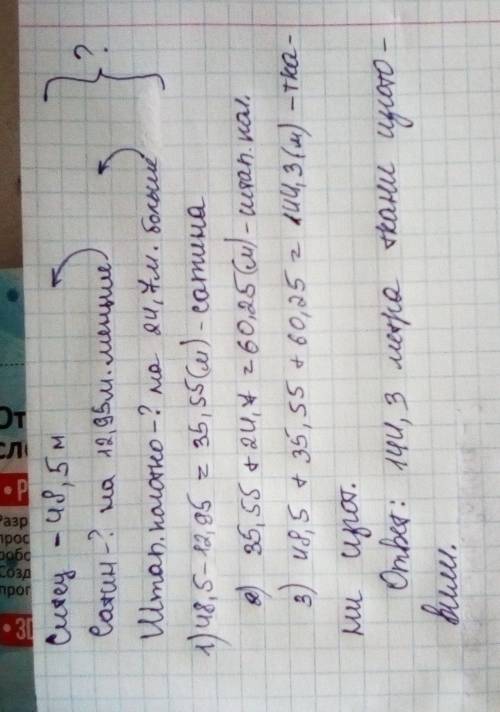 Ситец - 48,5 м
Сатин - ? на 12,95 м. меньше
Штап. полотно - ? на 24,7 м. больше
?
1) 48,5 - 12,95 = 35,55 (м) - сатина
2) 35,55 + 24,7 = 60,25 (м) - штап. пол.
3) 48,5 + 35,55 + 60,25 = 144,3 (м) - тка-
ни изгот.
Ответ: 144,3 метра ткани изгото-
вили.
От
сл
• Р
Разр
прос
робо
Созд
прог
• 3D